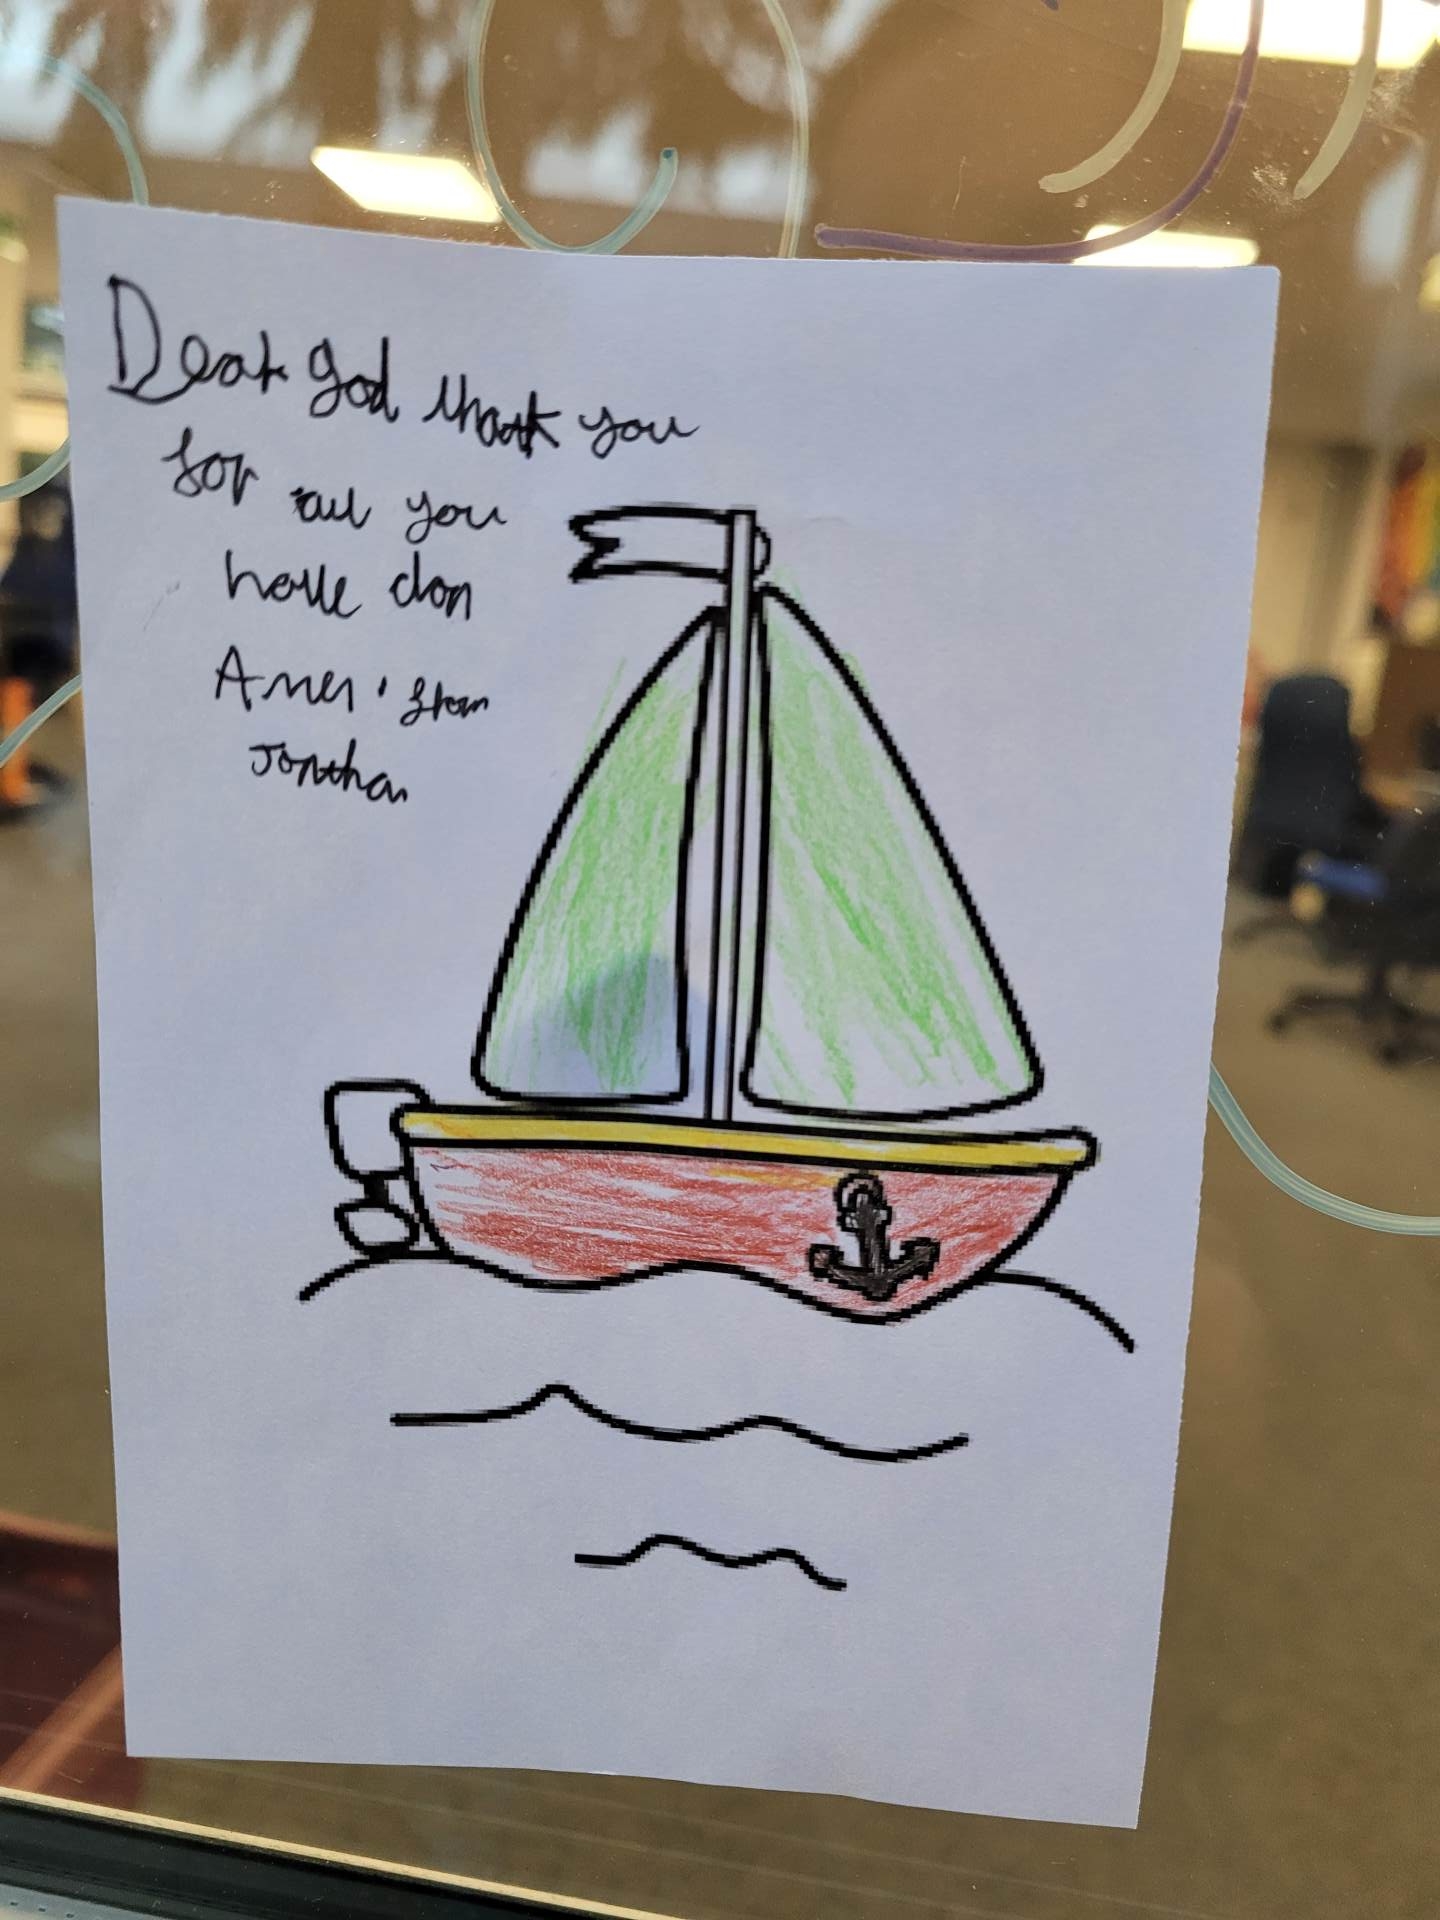 Dear god thank you
for all you
have don
Amen. from
Jonthan